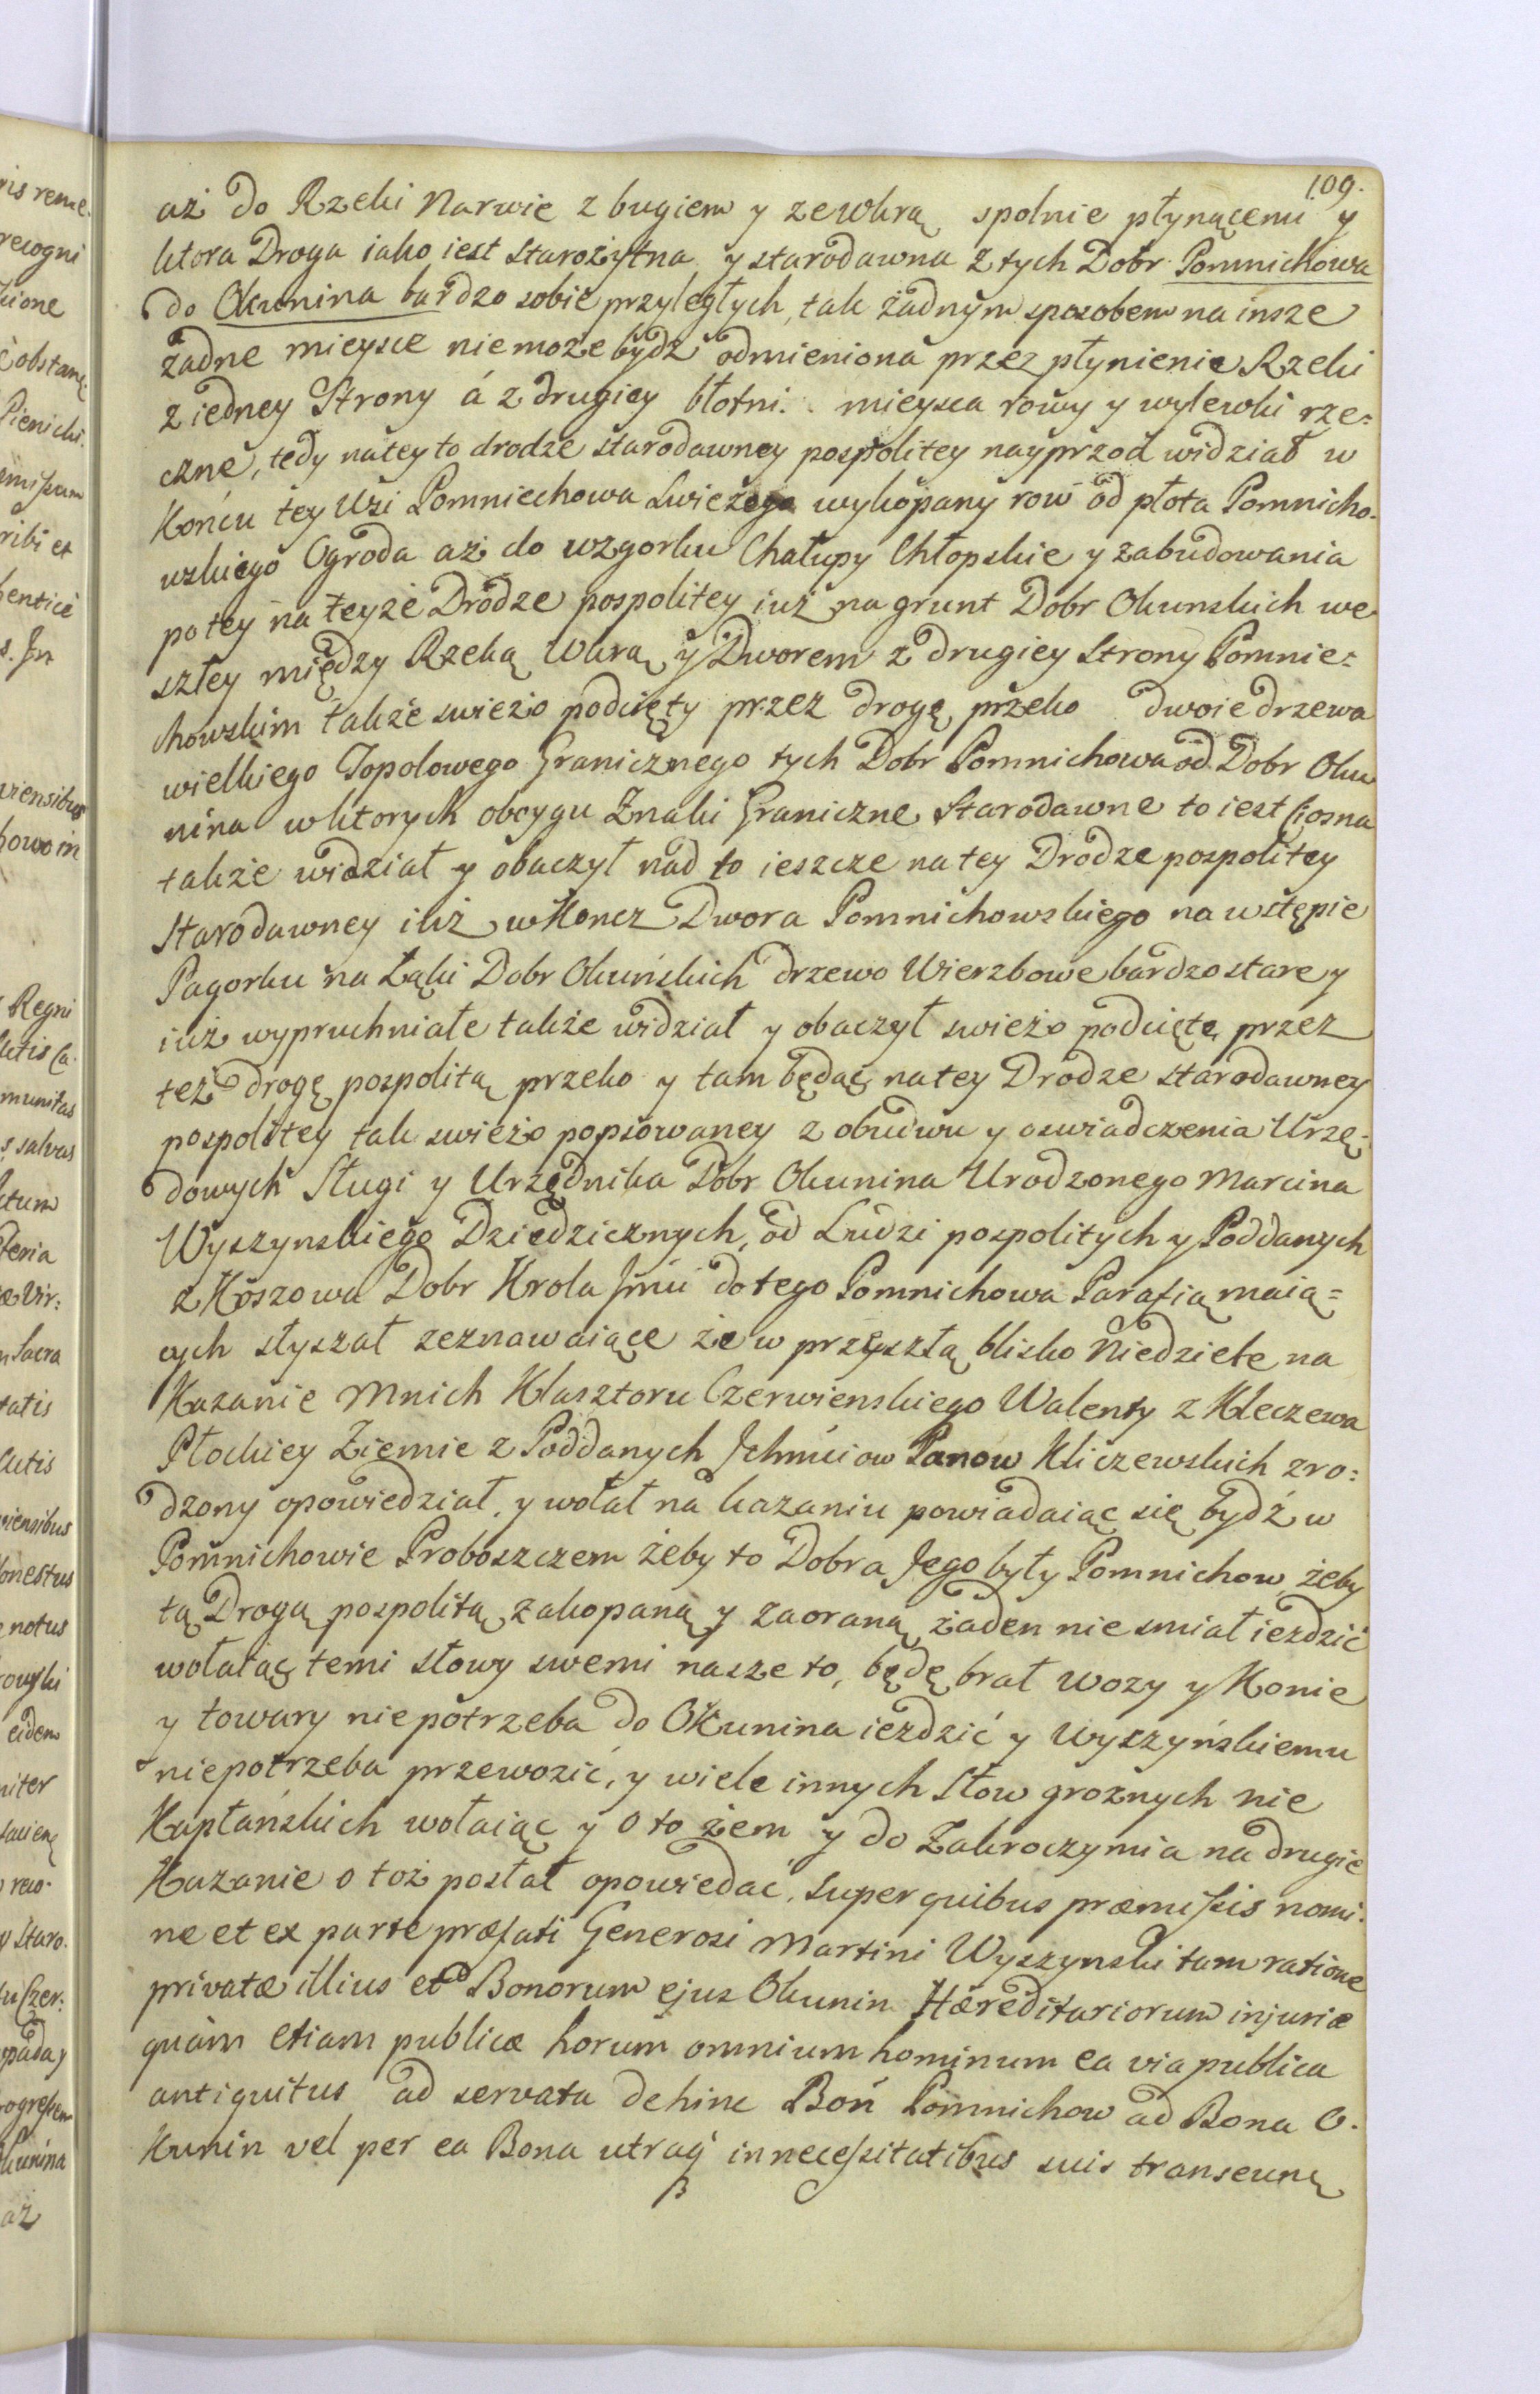 109.
aż do Rzeki Narwie z bugiem y zewkrą spolnie płynącemi y
ktora Droga iako iest Starożytna y starodawna z tych Dobr Pomnichowa
do Okunina bardzo sobie przyległych, tak żadnym sposobem na insze
żadne mieysce niemoże bydź odmieniona przez płynienie Rzeki
z iedney Strony á z drugiey błotni. . mieysca rowy y wylewki rze=
czne, tedy natey to drodze starodawney pospolitey nayprzod widział w
Końcu tey Wsi Pomniechowa Swieżego wykopany row od płota Pomnicho-
wskiego Ogroda aż do wzgorku Chałupy Chłopskie y zabudowania
potey na teyże Drodze pospolitey iuż na grunt Dobr Okunskich we
szłey między Rzeką Wkrą y Dworem z drugiey Strony Pomnie=
chowskim także swieżo podcięty przez drogę przeko dwoie drzewa
wielkiego Topolowego Granicznego tych Dobr Pomnichowa od Dobr Oku
nina wktorych obcygu Znaki Graniczne Starodawne to iest Ciosna
także widział y obaczył nad to ieszcze na tey Drodze pospolitey
Starodawney iuż wKoncz Dwora Pomnichowskiego na wstępie
Pagorku na Łąki Dobr Okuńskich drzewo Wierzbowe bardzo stare y
iuż wypruchniałe także widział y obaczył swieżo podcięte przez
też drogę pospolitą przeko y tam będąc natey Drodze starodawney
pospolitey tak swieżo popsowaney z obudwu y oswiadczenia Urzę-
dowych Sługi y Urzędnika Dobr Okunina Urodzonego Marcina
Wyszynskiego Dziedzicznych, od Ludzi pospolitych y Poddanych
z Koszowa Dobr Krola Jmći do tego Pomnichowa Parafią maią=
cych słyszał zeznawaiące że w przyszłą blisko Niedziele na
Kazanie Mnich Klasztoru Czerwienskiego Walenty z Kleczewa
Płockiey Ziemie z Poddanych Jchmściow Panow Kliczewskich zro=
dzony opowiedział, y wołał na kazaniu powiadaiąc się bydź w
Pomnichowie Proboszczem żeby to Dobra Jego były Pomnichow, żeby
tą Drogą pospolitą zakopaną y zaoraną żaden nie smiał ieździć
wołaiąc temi słowy swemi nasze to, będę brał wozy y Konie
y towary niepotrzeba do Okunina ieździć y Wyszyńskiemu
niepotrzeba przewozić, y wiele innych Słow groźnych nie
Kapłańskich wołaiąc y o to żem y do Zakroczymia na drugie
Kazanie o toż posłał opowiedać, super quibus præmissis nomi-
ne et ex parte præfati Generosi Martini Wyszynski tam ratione
privatæ illius et Bonorum ejus Okunin Hæreditariorum injuriæ
quàm etiam publicæ horum omnium hominum ea via publica
antiquitus ad servata dehinc Boń Pomnichow ad Bona O-
kunin vel per ea Bona utraq́ in necessitatibus suis transeunt